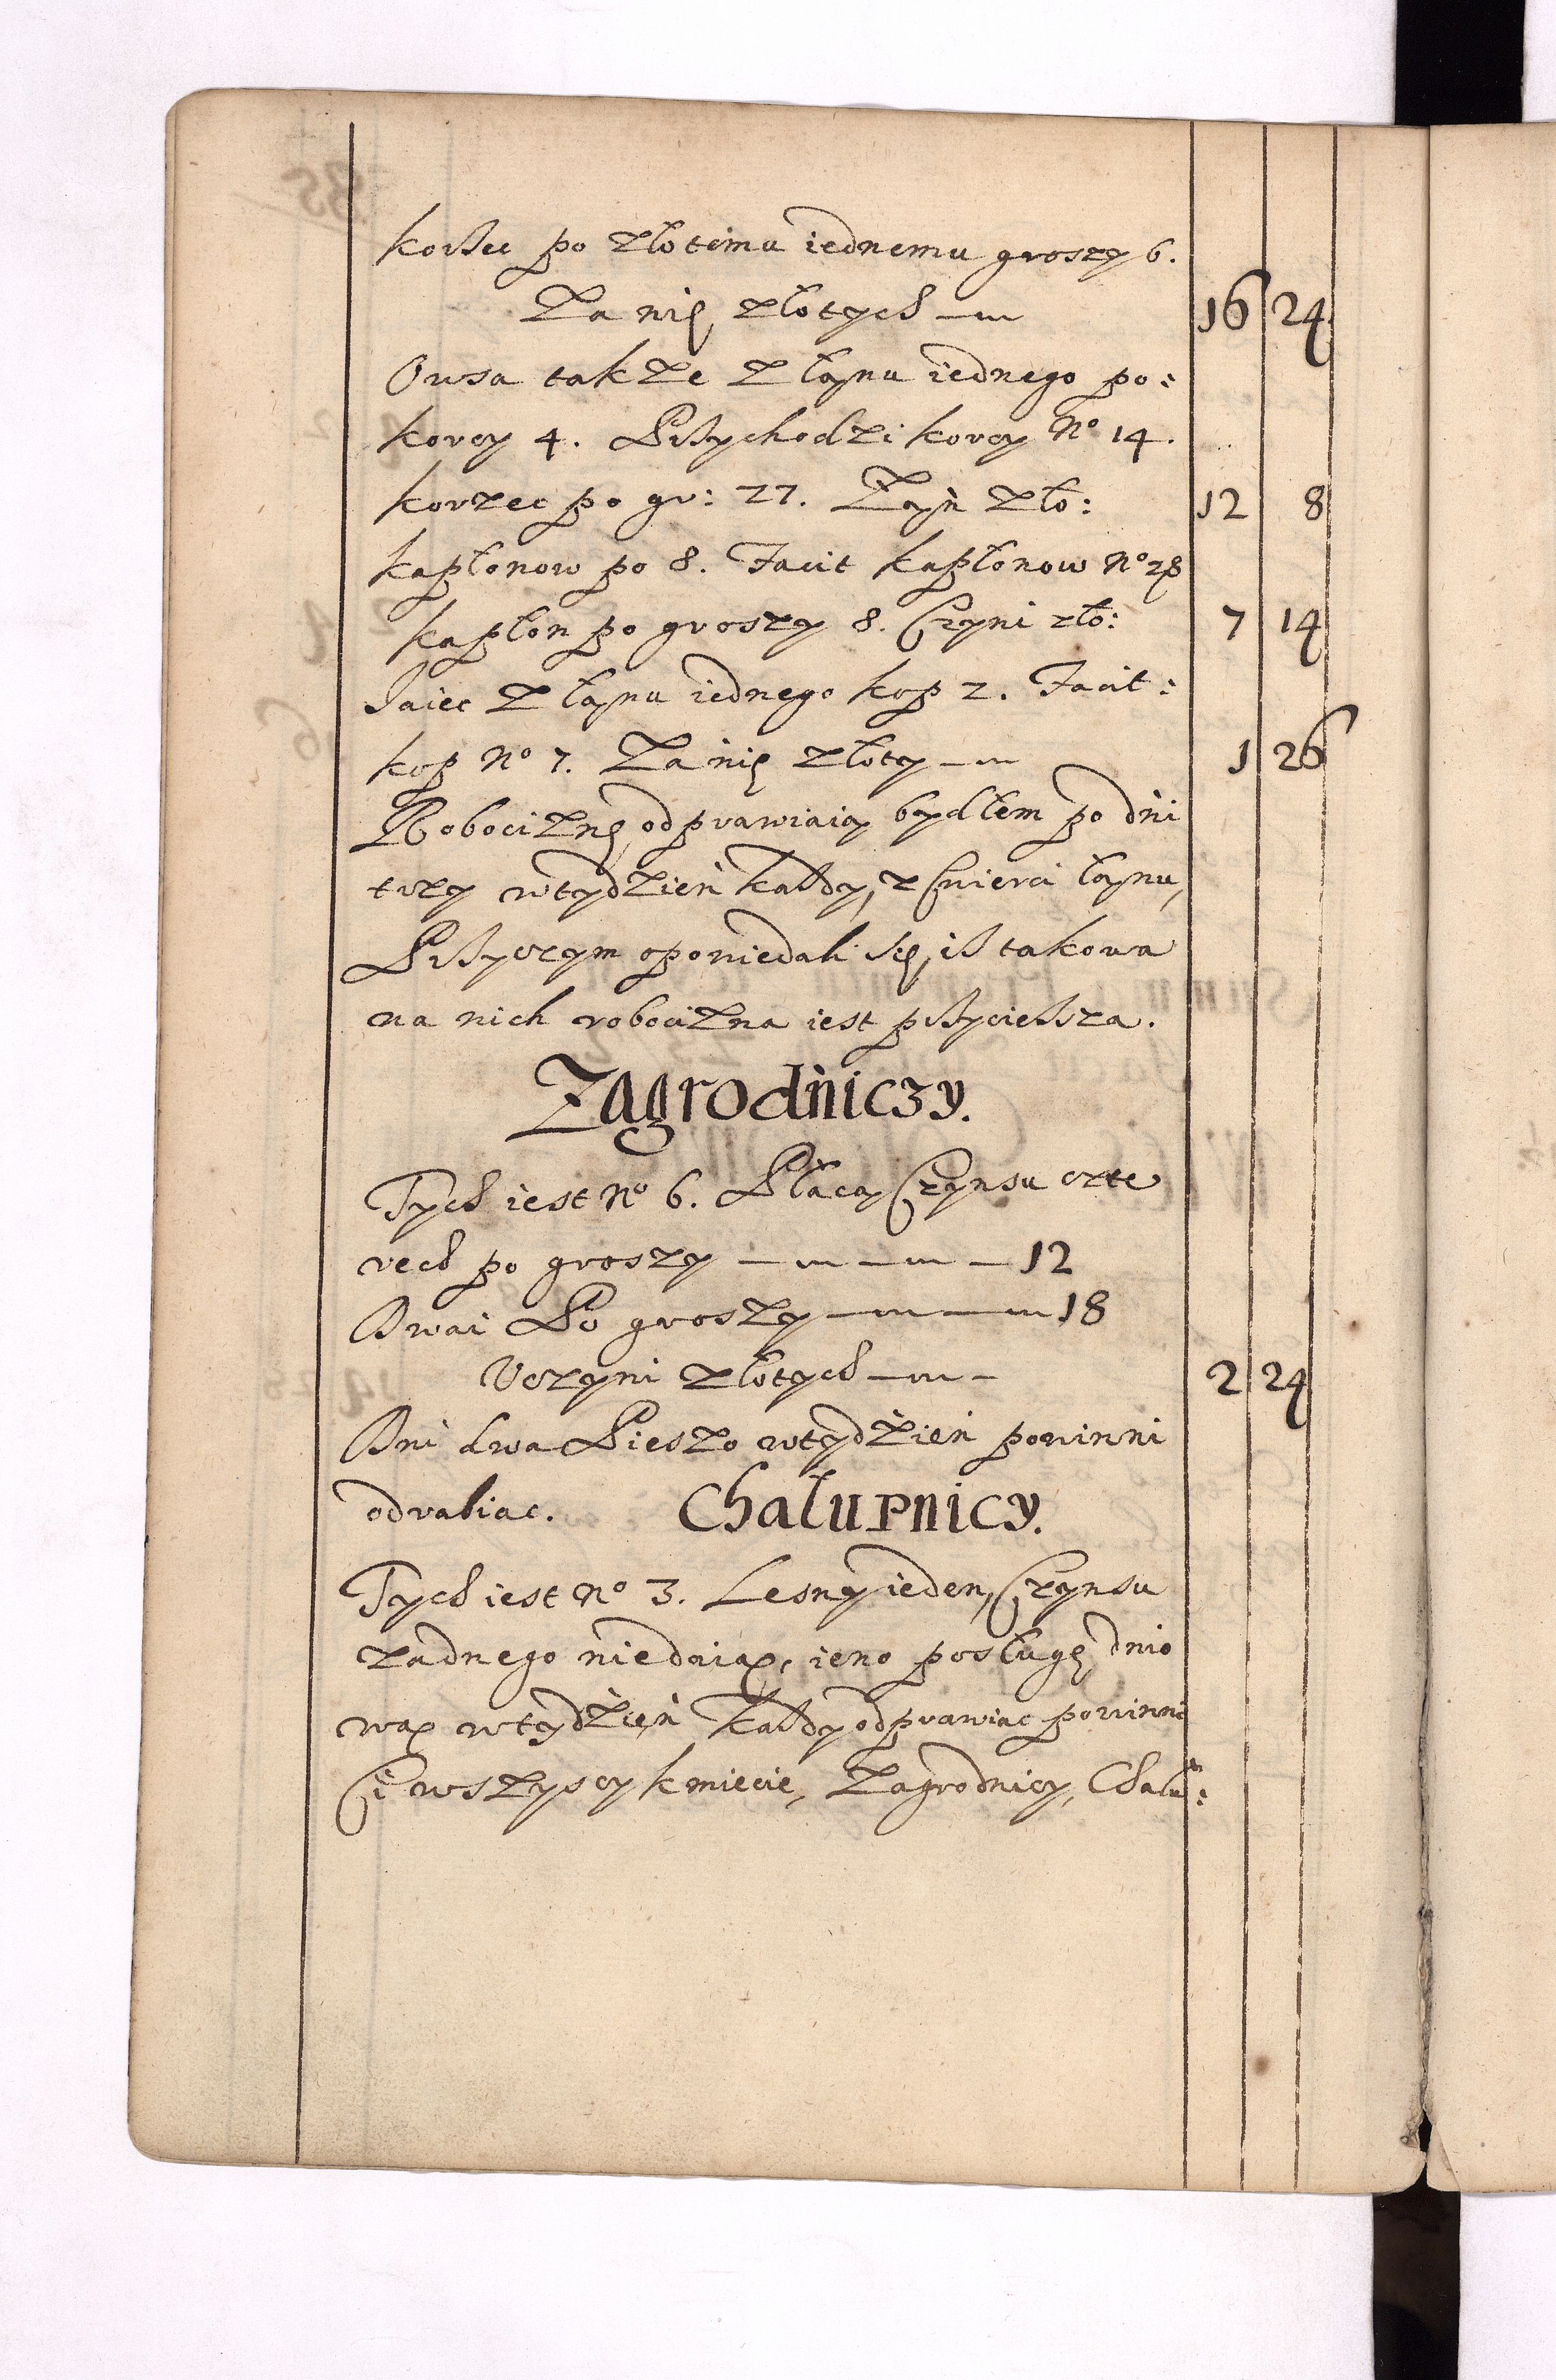 korzec po złotemu iednemu groszy 6.
Za nię złotych — 16 24
Owsa takze z łanu iednego po:
korcy 4. Przychodzi korcy No 14.
korzec po gr: 27. Zań zło: 12 8
kapłonow po 8. Facit kapłonow No 28
kapłon po groszy 8. Czyni zło: 7 14
Iaiec z łanu iednego kop 2. Facit:
kop No 7. Za nię złoty — 1 26
Robociznę odprawiaią bydłem po dni
trzy wtydzień kazdy, z ćwierci łanu,
Przyczym opowiedali się, iz takowa
na nich robocizna iest przycięzsza.
Zagrodniczy.
Tych iest No 6. Płacą Czynsu czte
rech po groszy — — — 12
Dwai Po groszy — — 18
Uczyni złotych — — 2 24
Dni dwa Pieszo wtydzień powinni
odrabiac. Chałupnicy.
Tych iest No 3. Lesny ieden, Czynsu
zadnego niedaią, ieno posługę dnio
wą wtydzień kazdy odprawiac powinni
Ci wszyscy kmiecie, Zagrodnicy, Chału: